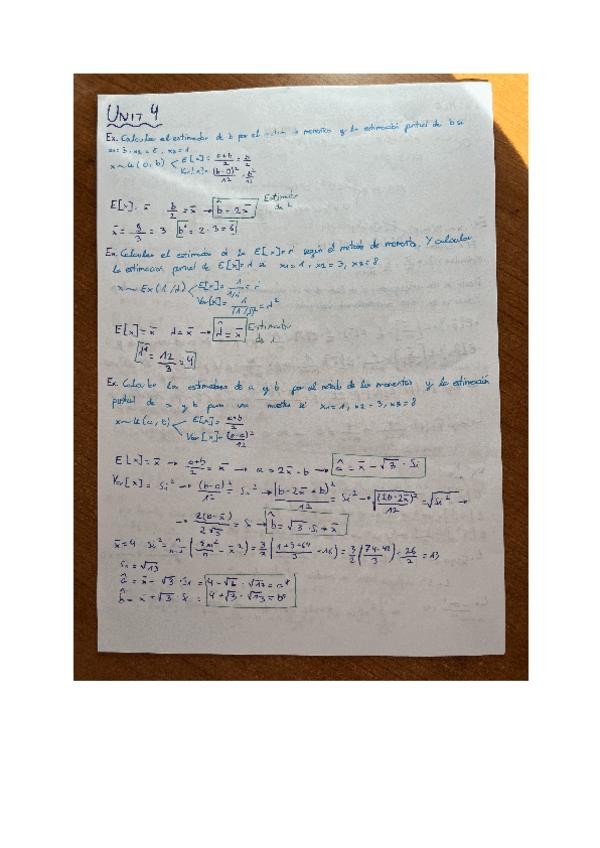 UNIT 4
Ex. Calcular el estimador de b por el de momentos y la estimación puntual de b si
x2 = 8, x3 = 1
x ~ U(0, b) < E[x] = (a+b)/2 = b/2
Var[x] = (b-0)²/12 = b²/12
E[x] = x̄ b/2 = x̄ → b̂ = 2x̄ Estimador de b
x̄ = 9/3 = 3 b* = 2·3 = 6
Ex. Calcular el estimador de la E[x] = según el método de momentos. Y calcular
la estimación puntual de E[x] = λ si x1 = 1, x2 = 3, x3 = 8
x ~ Ex(1/λ) < E[x] = 1/(1/λ) = λ
Var[x] = 1/(1/λ)² = λ²
E[x] = x̄ λ = x̄ → λ̂ = x̄ Estimador de λ
λ* = 12/3 = 4
Ex. Calcular los estimadores de a y b por el método de los momentos y la estimación
puntual de a y b para una muestra si x1 = 1, x2 = 3, x3 = 8
x ~ U(a, b) < E[x] = (a+b)/2
Var[x] = (b-a)²/12
E[x] = x̄ → (a+b)/2 = x̄ → a = 2x̄ - b → â = x̄ - √3 · Si
Var[x] = Si² → (b-a)²/12 = Si² → (b-2x̄+b)²/12 = Si² → √((2b-2x̄)²/12) = √Si² →
→ 2(b-x̄)/2√3 = Si → b̂ = √3 · Si + x̄
x̄ = 4 Si² = n/(n-1) (Σxi²/n - x̄²) = 3/2 ((1+9+64)/3 - 16) = 3/2 (74-48)/3 = 26/2 = 13
Si = √13
â = x̄ - √3 · Si = 4 - √3 · √13 = a*
b̂ = x̄ + √3 · Si = 4 + √3 · √13 = b*